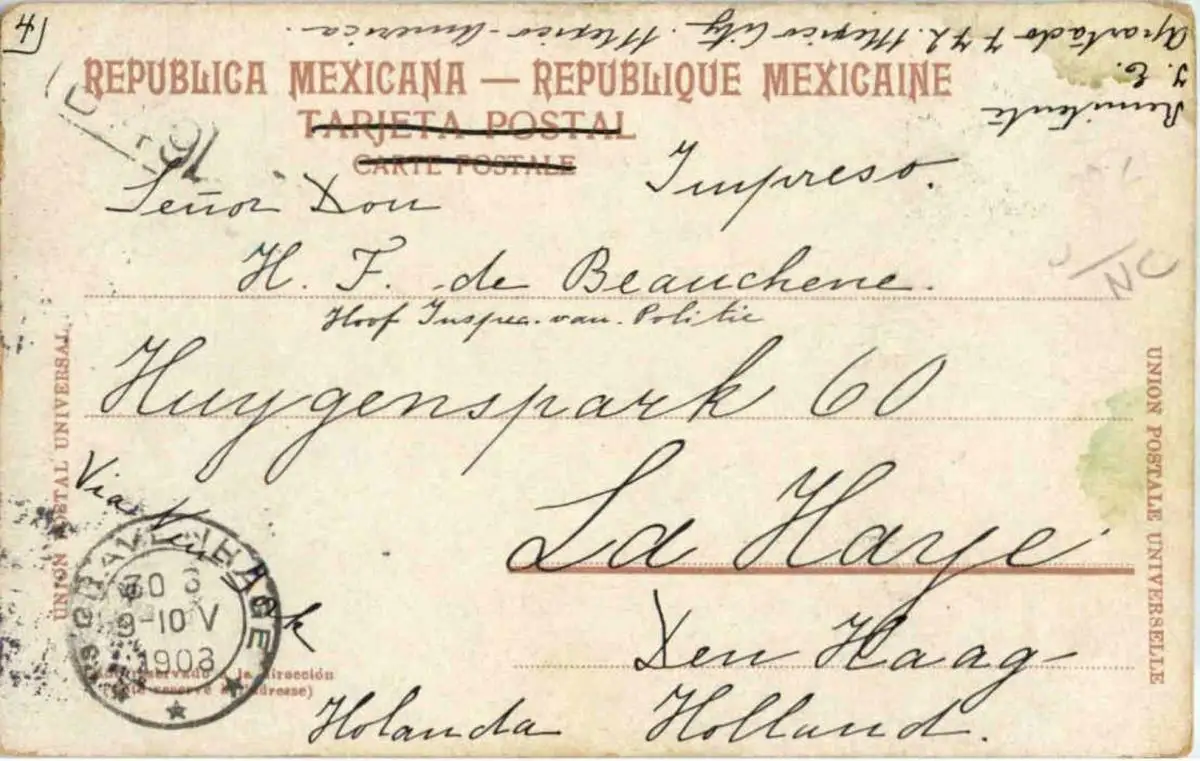 4
Remitente
J. C.
Apartado 772. Mexico City. Mexico-America.
REPUBLICA MEXICANA — REPUBLIQUE MEXICAINE
TARJETA POSTAL
CARTE POSTALE
Impreso.
Señor Don
H. F. de Beauchene.
Hoof Inspec. van. Politie
Huygenspark 60
La Haye
Den Haag
Holanda Holland.
Via New York
UNION POSTAL UNIVERSAL
UNION POSTALE UNIVERSELLE
'S GRAVENHAGE
30 3
9-10 V
1903
reservado a la dirección
reservé à l'adresse)
NC